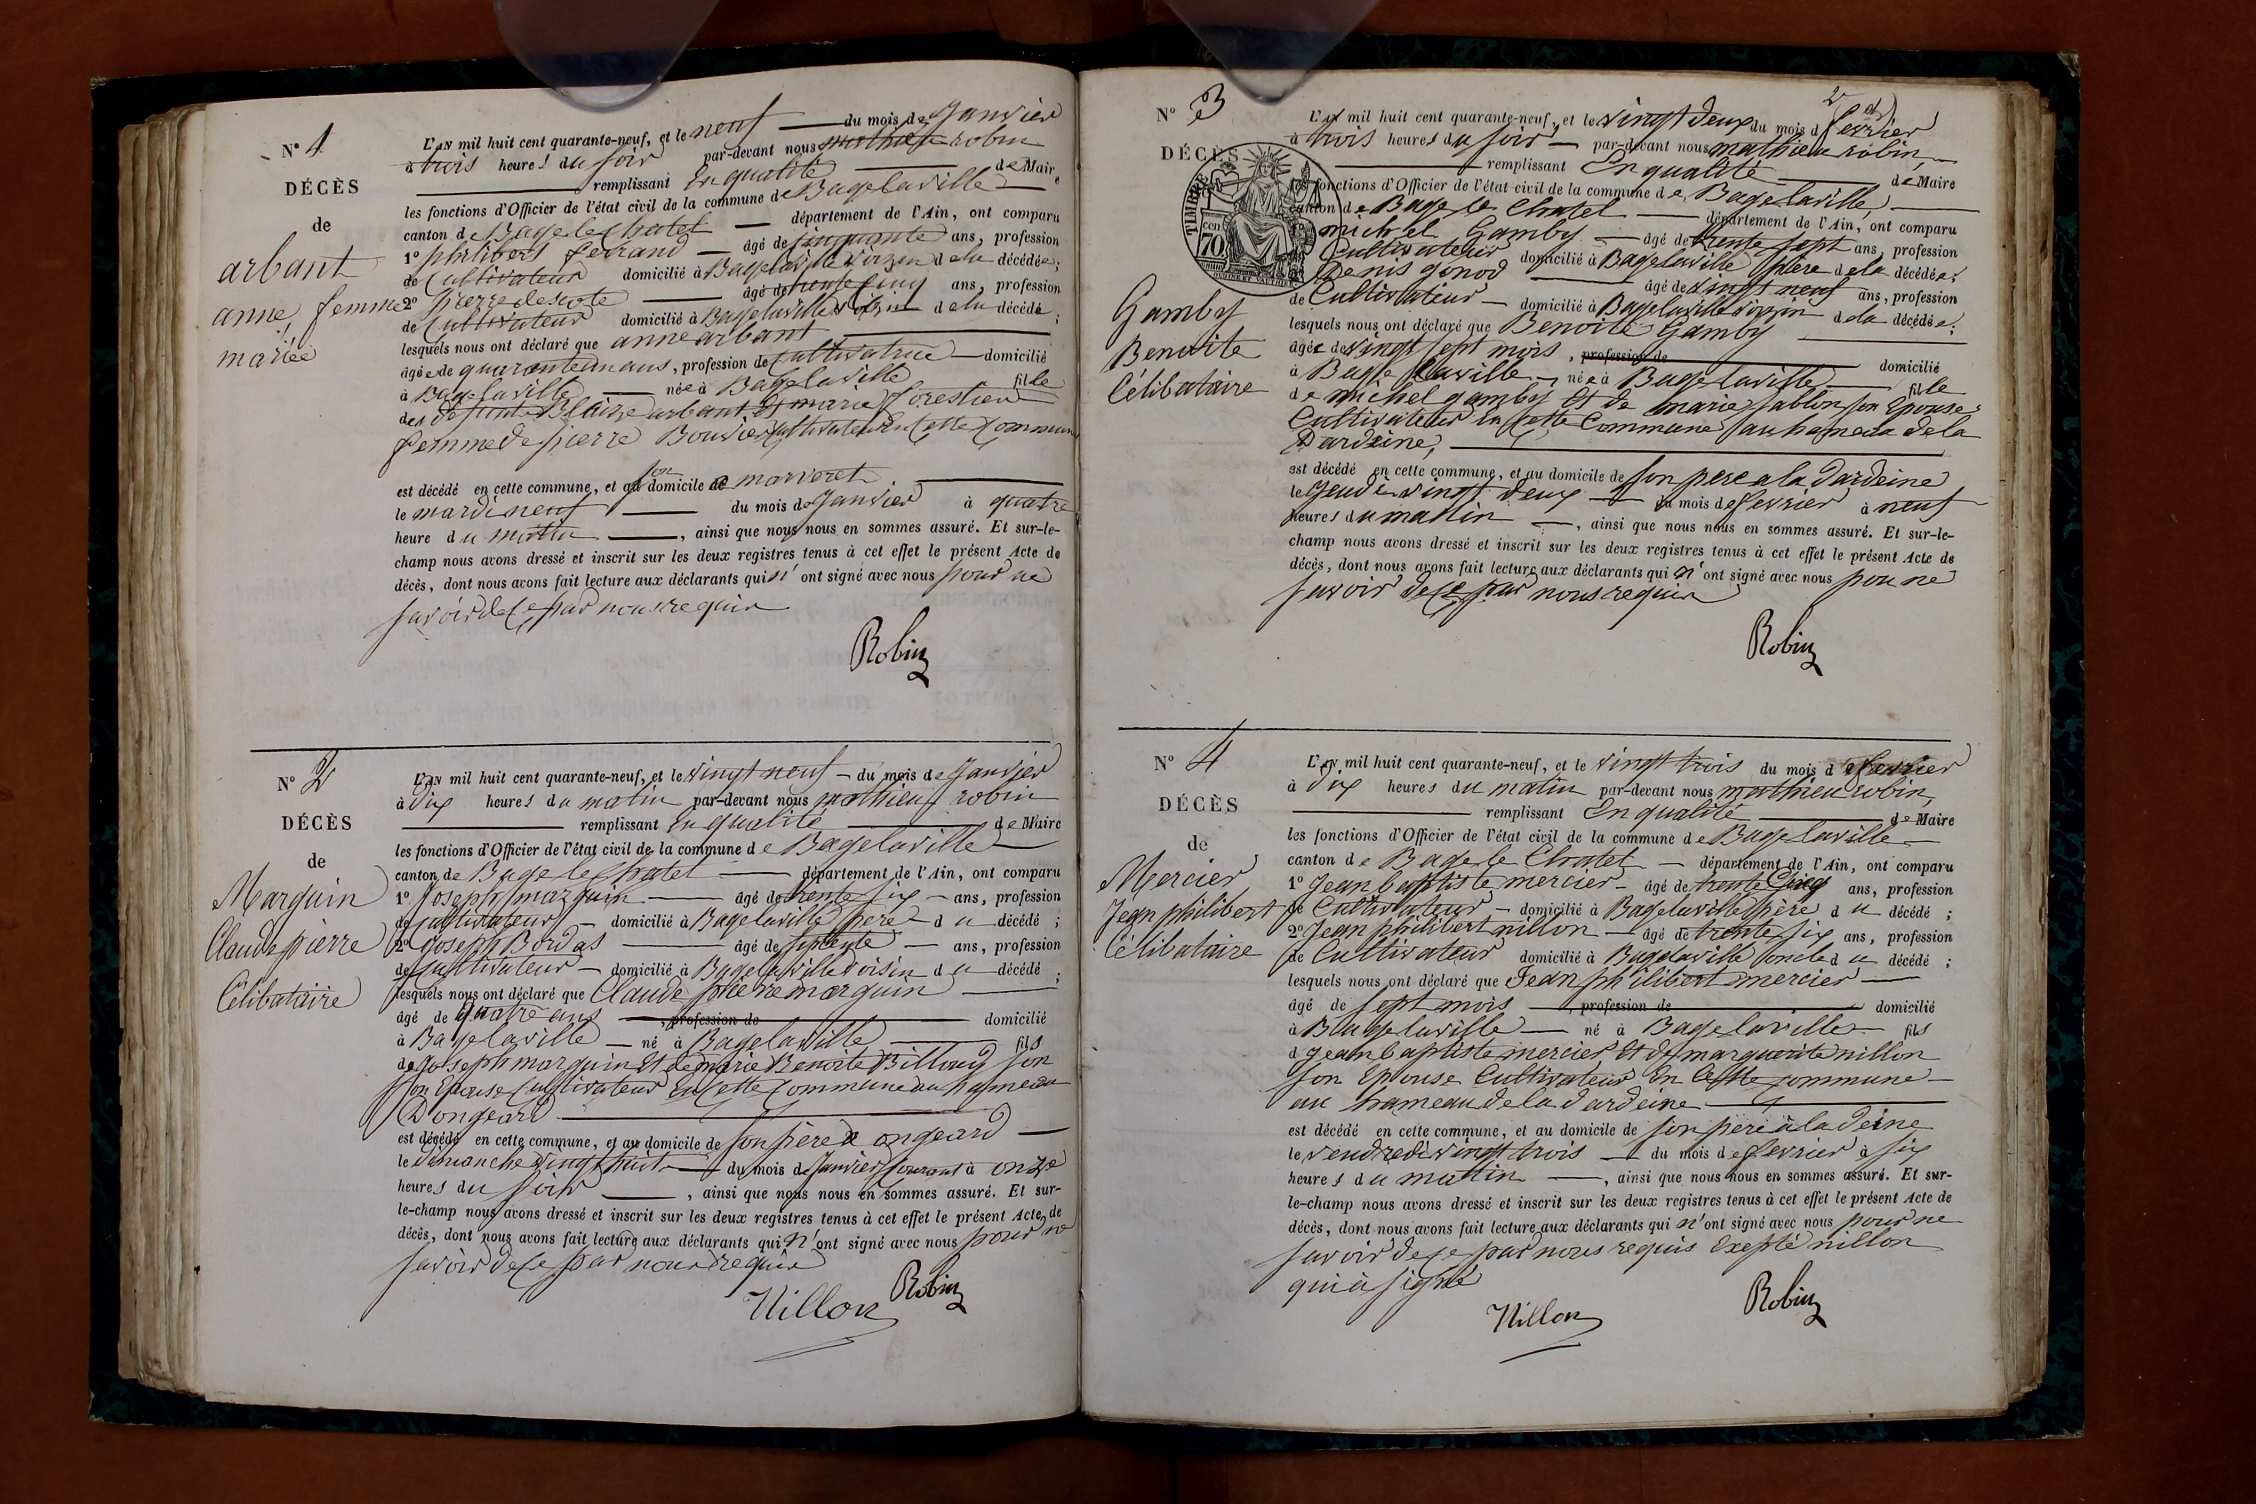 N° 1
DÉCÈS
de
arbant
anne, femme
mariée
L'AN mil huit cent quarante-neuf, et le neuf du mois de Janvier
à trois heures du soir par-devant nous mathieu robin
remplissant En qualité de Maire
les fonctions d'Officier de l'état civil de la commune de Bagelaville
canton de Bage le Chatel département de l'Ain, ont comparu
1° philibert ferrand âgé de cinquante ans, profession
de Cultivateur domicilié à Bagelaville voizin de la décédée;
2° Pierre descote âgé de trente cinq ans, profession
de Cultivateur domicilié à Bagelaville voisin de la décédé;
lesquels nous ont déclaré que anne arbant
âgée de quarante un ans, profession de Cultivatrice domicilié
à Bagelaville née à Bagelaville fille
des defunts Blaize arbant Et marie forestier
femme de pierre Bouvier Cultivateur En Cette Commune
est décédé en cette commune, et au domicile de son marveret
le mardi neuf du mois de Janvier à quatre
heure du matin, ainsi que nous nous en sommes assuré. Et sur-le-
champ nous avons dressé et inscrit sur les deux registres tenus à cet effet le présent Acte de
décès, dont nous avons fait lecture aux déclarants qui n' ont signé avec nous pour ne
savoir de Ce par nous requin
Robin
N° 2
DÉCÈS
de
Marguin
Claude pierre
Célibataire
L'AN mil huit cent quarante-neuf, et le vingt neuf du mois de Janvier
à dix heures du matin par-devant nous mathieu robin
remplissant En qualité de Maire
les fonctions d'Officier de l'état civil de la commune de Bagelaville
canton de Bage le Chatel département de l'Ain, ont comparu
1° Joseph marguin âgé de trente six ans, profession
de Cultivateur domicilié à Bagelaville pere du décédé;
2° Joseph Bordas âgé de septente ans, profession
de Cultivateur domicilié à Bagelaville voisin du décédé;
lesquels nous ont déclaré que Claude pierre marguin
âgé de quatre ans, profession de domicilié
à Bagelaville né à Bagelaville fils
de Joseph marguin Et de marie Benoite Billoud son
son Epouse Cultivateur En Cette Commune au hameau
Dongeard
est décédé en cette commune, et au domicile de son père a ongeard
le dimanche vingt huit du mois de Janvier Courant à onze
heures du soir, ainsi que nous nous en sommes assuré. Et sur-
le-champ nous avons dressé et inscrit sur les deux registres tenus à cet effet le présent Acte de
décès, dont nous avons fait lecture aux déclarants qui n' ont signé avec nous pour ne
savoir de Ce par nous requis
Nillon Robin
2
N° 3
DÉCÈS
TIMBRE
70 cen
Gamby
Benoite
Célibataire
L'AN mil huit cent quarante-neuf, et le vingt deux du mois de fevrier
à trois heures du soir par-devant nous mathieu robin,
remplissant En qualité de Maire
les fonctions d'Officier de l'état civil de la commune de Bagelaville
canton de Bage le Chatel département de l'Ain, ont comparu
michel Gamby âgé de trente sept ans, profession
Cultivateur domicilié à Bagelaville père de la décédée;
Denis gonod âgé de vingt neuf ans, profession
de Cultivateur domicilié à Bagelaville voizin de la décédée;
lesquels nous ont déclaré que Benoite Gamby
âgée de vingt sept mois, profession de domicilié
à Bage laville née à Bagelaville fille
de michel gamby Et de marie sablon son Epouse
Cultivateur En Cette Commune au hameau de la
Dardeine,
est décédé en cette commune, et au domicile de son pere a la Dardeine
le Jeudi vingt deux du mois de fevrier à neuf
heures du matin, ainsi que nous nous en sommes assuré. Et sur-le-
champ nous avons dressé et inscrit sur les deux registres tenus à cet effet le présent Acte de
décès, dont nous avons fait lecture aux déclarants qui n' ont signé avec nous pou ne
savoir de Ce par nous requin
Robin
N° 4
DÉCÈS
de
Mercier
Jean philibert
Célibataire
L'AN mil huit cent quarante-neuf, et le vingt trois du mois de fevrier
à dix heures du matin par-devant nous mathieu robin,
remplissant En qualité de Maire
les fonctions d'Officier de l'état civil de la commune de Bagelaville
canton de Bage le Chatel département de l'Ain, ont comparu
1° Jean baptiste mercier âgé de trente Cinq ans, profession
de Cultivateur domicilié à Bagelaville père du décédé;
2° Jean philibert nillon âgé de trente six ans, profession
de Cultivateur domicilié à Bagelaville oncle du décédé;
lesquels nous ont déclaré que Jean philibert mercier
âgé de sept mois, profession de domicilié
à Bagelaville né à Bagelaville fils
d Jean baptiste mercier Et de marguerite nillon
son Epouse Cultivateur En Cette Commune
au hameau de la dardeine
est décédé en cette commune, et au domicile de son pere à la deine
le vendredi vingt trois du mois de fevrier à six
heures du matin, ainsi que nous nous en sommes assuré. Et sur-
le-champ nous avons dressé et inscrit sur les deux registres tenus à cet effet le présent Acte de
décès, dont nous avons fait lecture aux déclarants qui n' ont signé avec nous pour ne
savoir de Ce par nous requis Exepté nillon
qui à signé
Nillon Robin